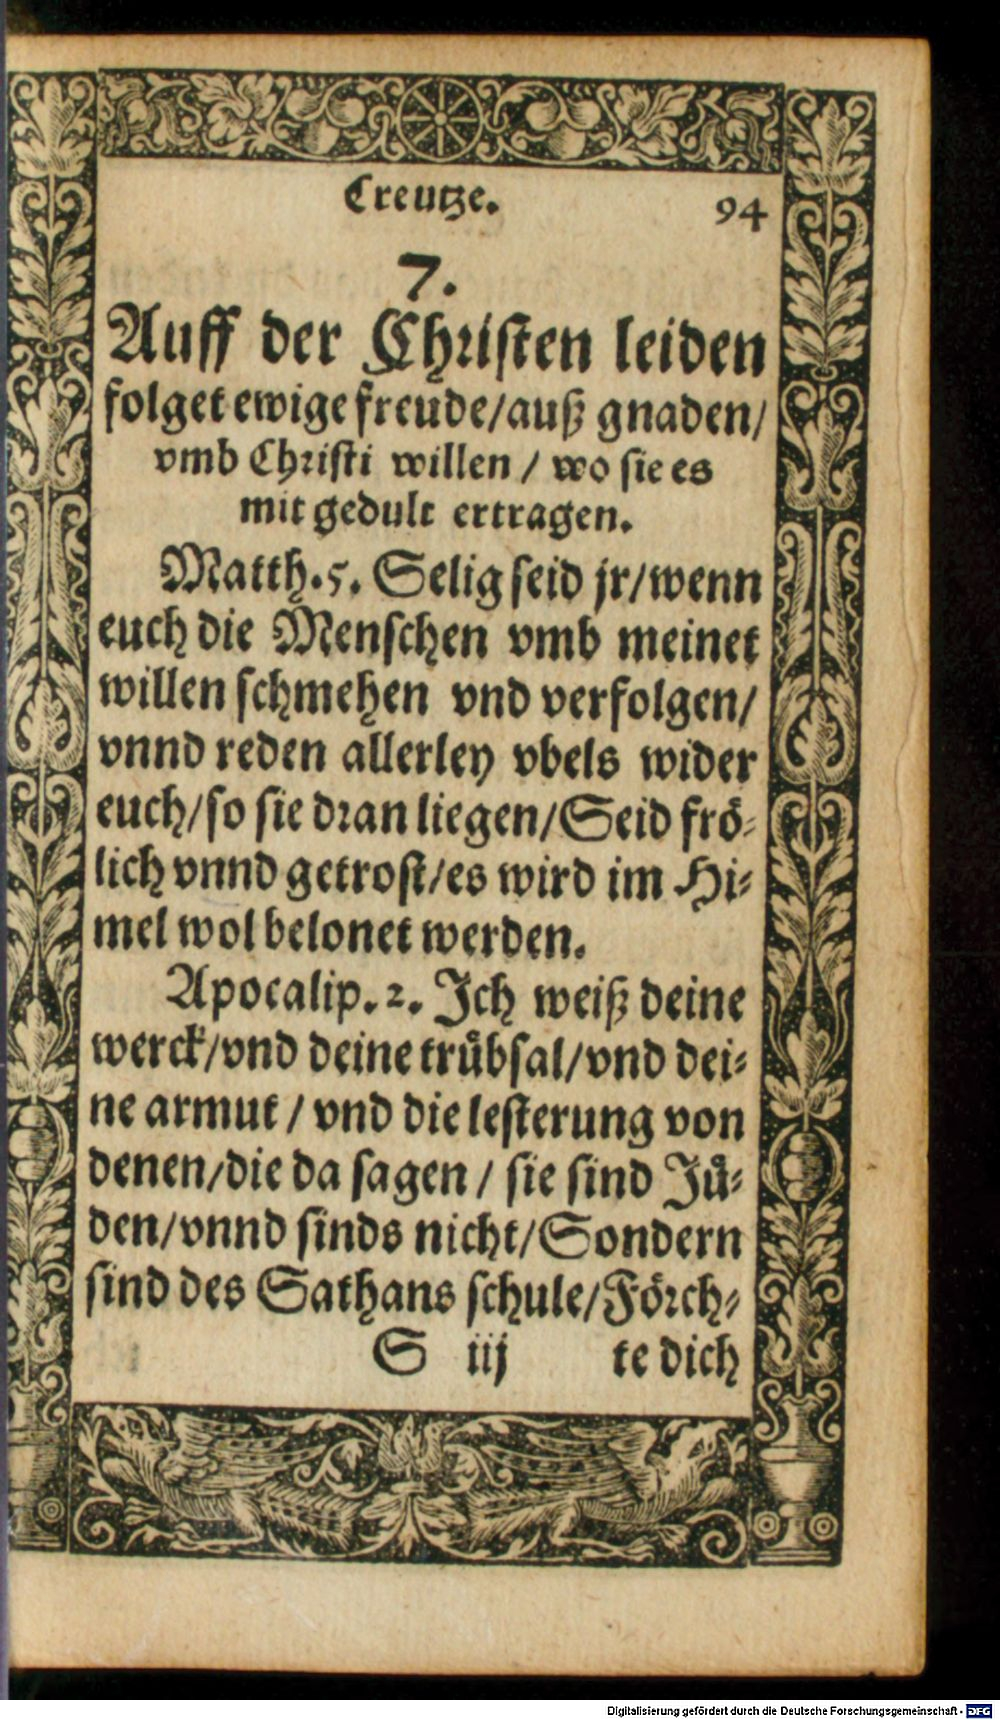 Creutze. 94
7.
Auff der Christen leiden
folget ewige freude/auß gnaden/
vmb Christi willen / wo sie es
mit gedult ertragen.
Matth.5. Selig seid jr/wenn
euch die Menschen vmb meinet
willen schmehen vnd verfolgen/
vnnd reden allerley vbels wider
euch/so sie dran liegen/Seid frö-
lich vnnd getrost/es wird im Hi-
mel wol belonet werden.
Apocalip.2. Jch weiß deine
werck/vnd deine trübsal/vnd dei-
ne armut / vnd die lesterung von
denen/die da sagen / sie sind Jü-
den/vnnd sinds nicht/Sondern
sind des Sathans schule/Förch-
S iij te dich
Digitalisierung gefördert durch die Deutsche Forschungsgemeinschaft - DFG